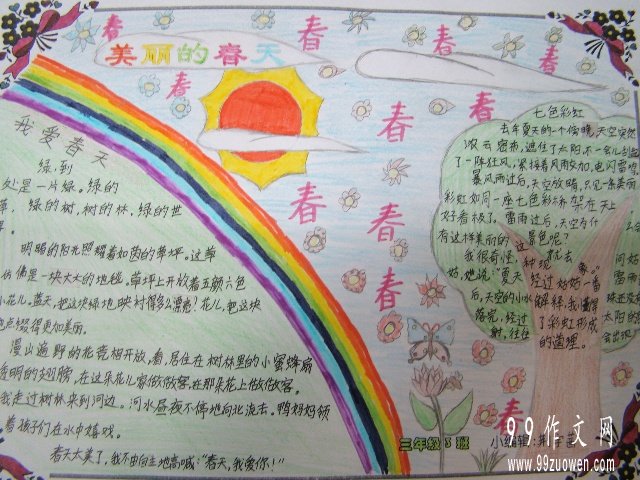 美丽的春天
春
春
春
春
春
春
春
春
春
春
春
我爱春天
绿,到
处是一片绿。绿的
草,绿的树,树的林,绿的世
明媚的阳光照耀着如茵的草坪。这草
仿佛是一块大大的地毯,草坪上开放着五颜六色
小花儿。蓝天,把这块绿地映衬得多么漂亮!花儿,把这块
地点缀得更加美丽。
漫山遍野的花竞相开放,看,居住在树林里的小蜜蜂扇
透明的翅膀,在这朵花儿家做做客,在那朵花上做做客。
我走过树林来到河边。河水昼夜不停地向北流去。鸭妈妈领
着孩子们在水中嬉戏。
春天太美了,我不由自主地高喊:“春天,我爱你!”
七色彩虹
去年夏天的一个傍晚,天空突然
浓云密布,遮住了太阳,不一会儿刮起
了一阵狂风,紧接着风雨交加,电闪雷鸣
暴风雨过后,天空放晴,只见一条美丽
彩虹如同一座七色彩桥架在天上
好看极了。雷雨过后,天空为什
有这样美丽的这景色呢?
我很奇怪,就去问妈
妈,她说:“夏天
后,天空的小水
落完,经过
射,往往
种现象。”
经过妈妈一番
解释,我懂得
了彩虹形成
的道理。
三年级3班
小编辑:
99作文网
www.99zuowen.com